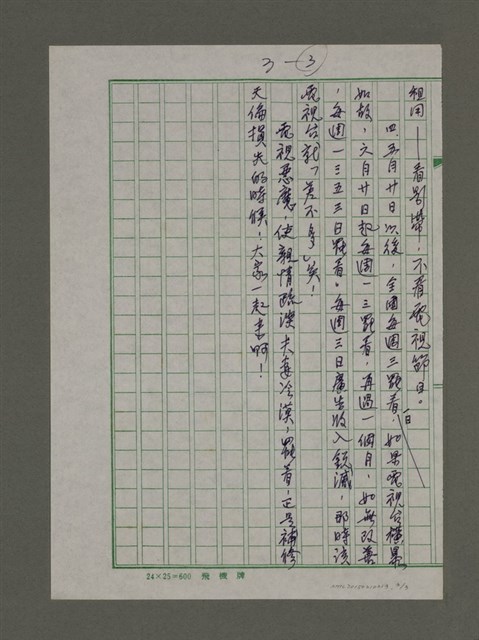 3-③
租用——看影帶，不看電視節目。
四、五月廿日以後，全國每週三罷看，如果電視台橫暴
一日
如故，六月廿日起每週一三罷看，再過一個月，如無改善
，每週一三五三日罷看。每週三日廣告收入銳減，那時該
電視台就「差不多」矣！
電視惡魔，使親情疏淡夫妻冷漠，罷看，正是補修
天倫損失的時候，大家一起來啊！
24×25=600 飛機牌